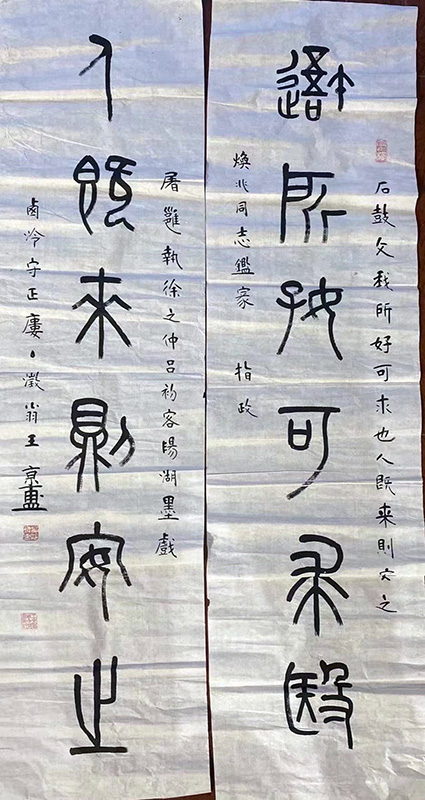 石鼓文我所好可求也人既来則安之
所好可求殹
煥兆同志鑑家 指政
屠維執徐之仲呂初客陽湖墨戲
人既來則安之
守正廔澂翁王京盙